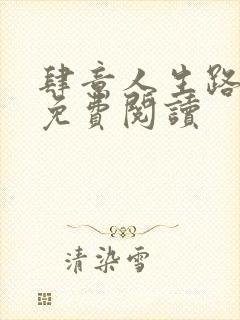 肆意人生路
免費閱讀
清染雪